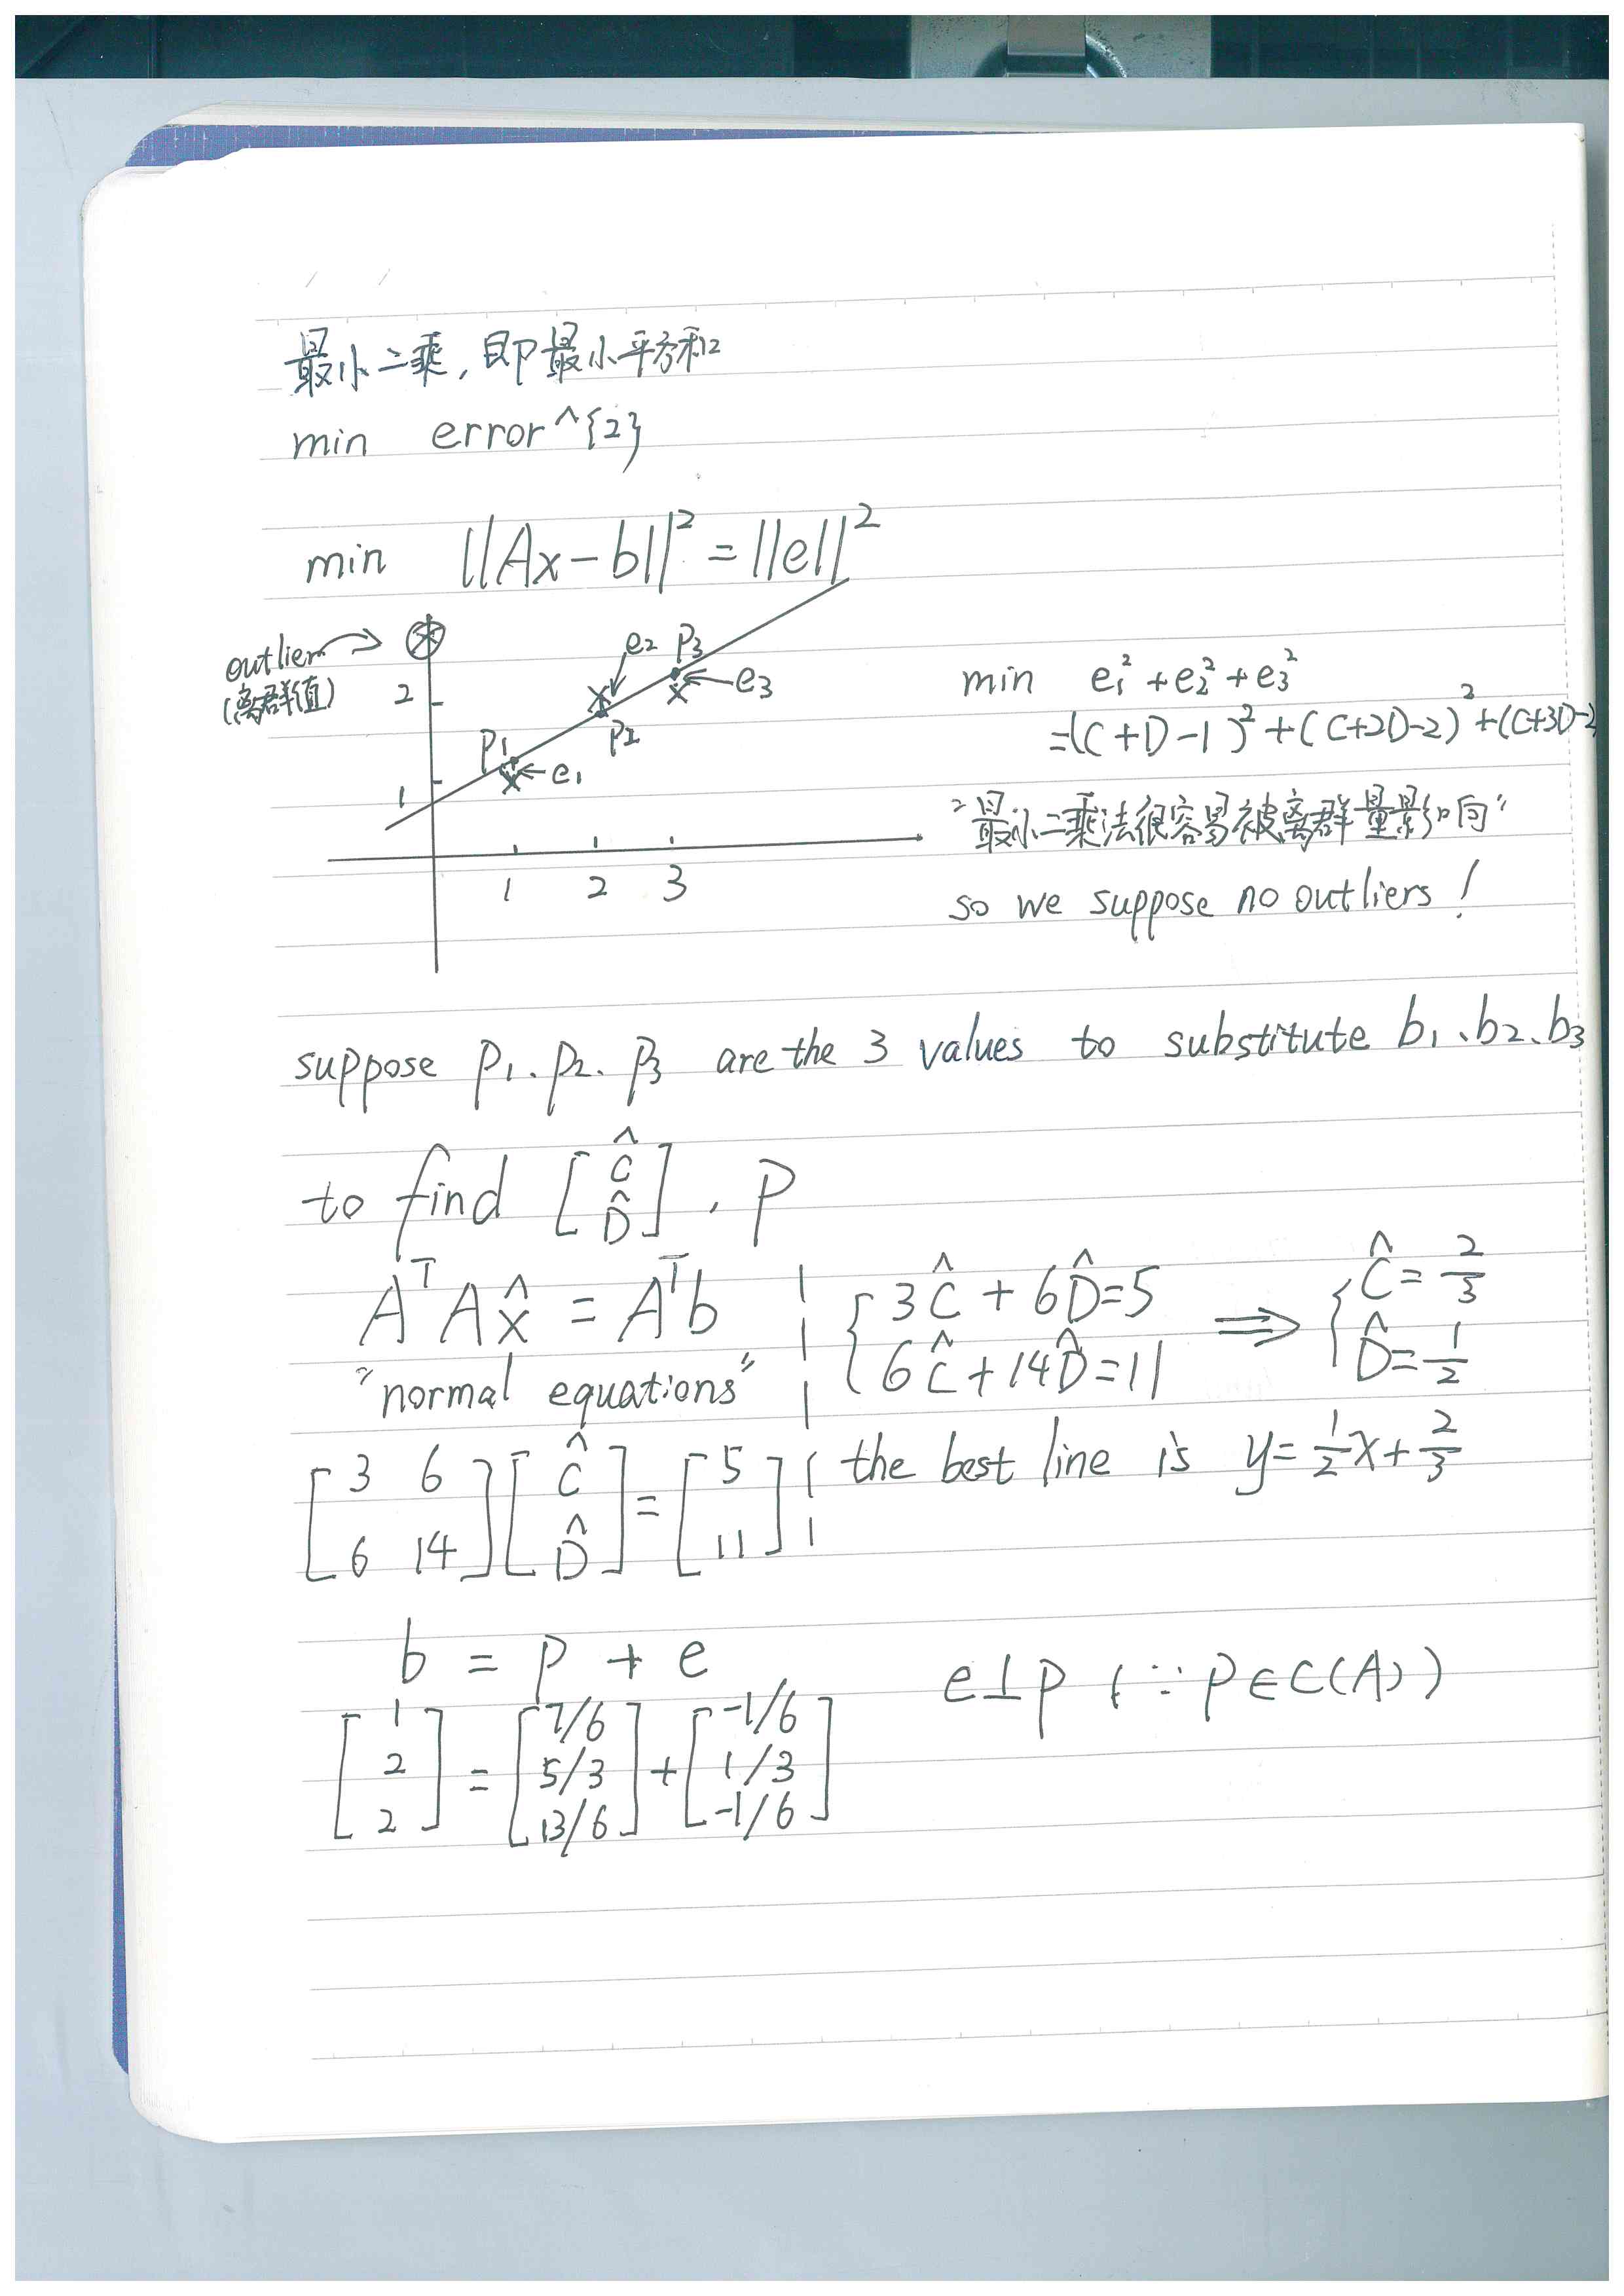 最小二乘,即最小平方和
min error^{2}
min ||Ax-b||² = ||e||²
outlier
(离群值)
2
1
1 2 3
P1
e1
e2
P2
P3
e3
min e₁²+e₂²+e₃²
=(C+D-1)²+(C+2D-2)²+(C+3D-2
"最小二乘法很容易被离群量影响"
so we suppose no outliers!
suppose P₁、P₂、P₃ are the 3 values to substitute b₁、b₂、b₃
to find [Ĉ D̂], P
AᵀAx̂ = Aᵀb
"normal equations"
[3 6
6 14][Ĉ
D̂]=[5
11]
{3Ĉ+6D̂=5
6Ĉ+14D̂=11
⇒ {Ĉ=2/3
D̂=1/2
the best line is y=1/2x+2/3
b = p + e
[1
2
2]=[7/6
5/3
13/6]+[-1/6
1/3
-1/6]
e⊥p (∵p∈C(A))